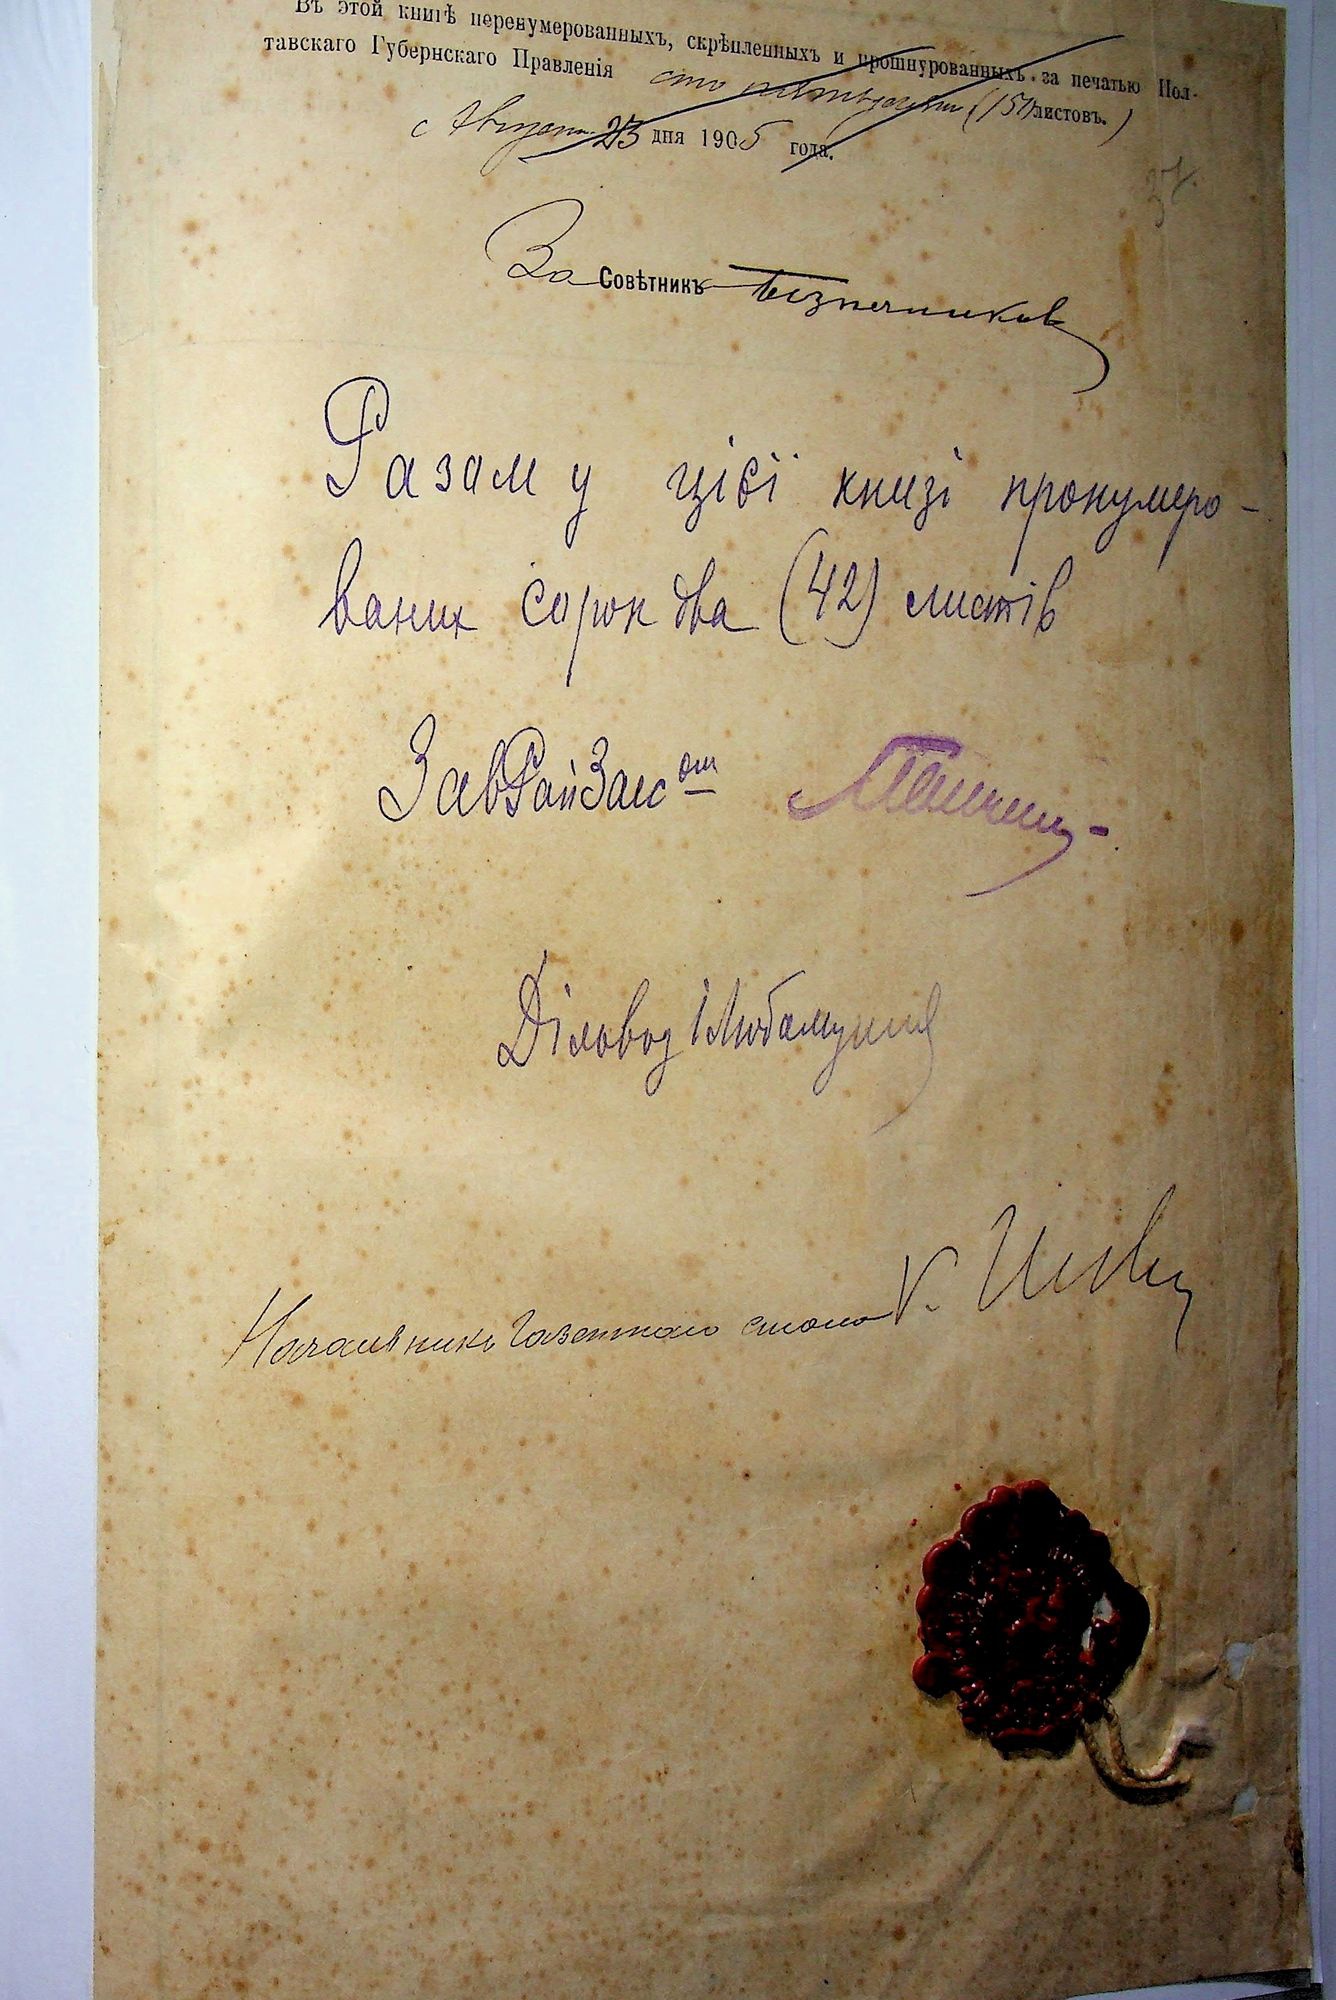 Въ этой книгѣ перенумерованныхъ, скрѣпленныхъ и прошнурованныхъ за печатью Пол-
тавскаго Губернскаго Правленія сто пятьдесятъ (150 листовъ.)
Августа 23 дня 1905 года.
37.
За Совѣтникъ
Разам у цієї книзі пронумеро-
ваних сорок два (42) листів
ЗавРайЗагсом
Діловод
Начальникъ Газетнаго стола